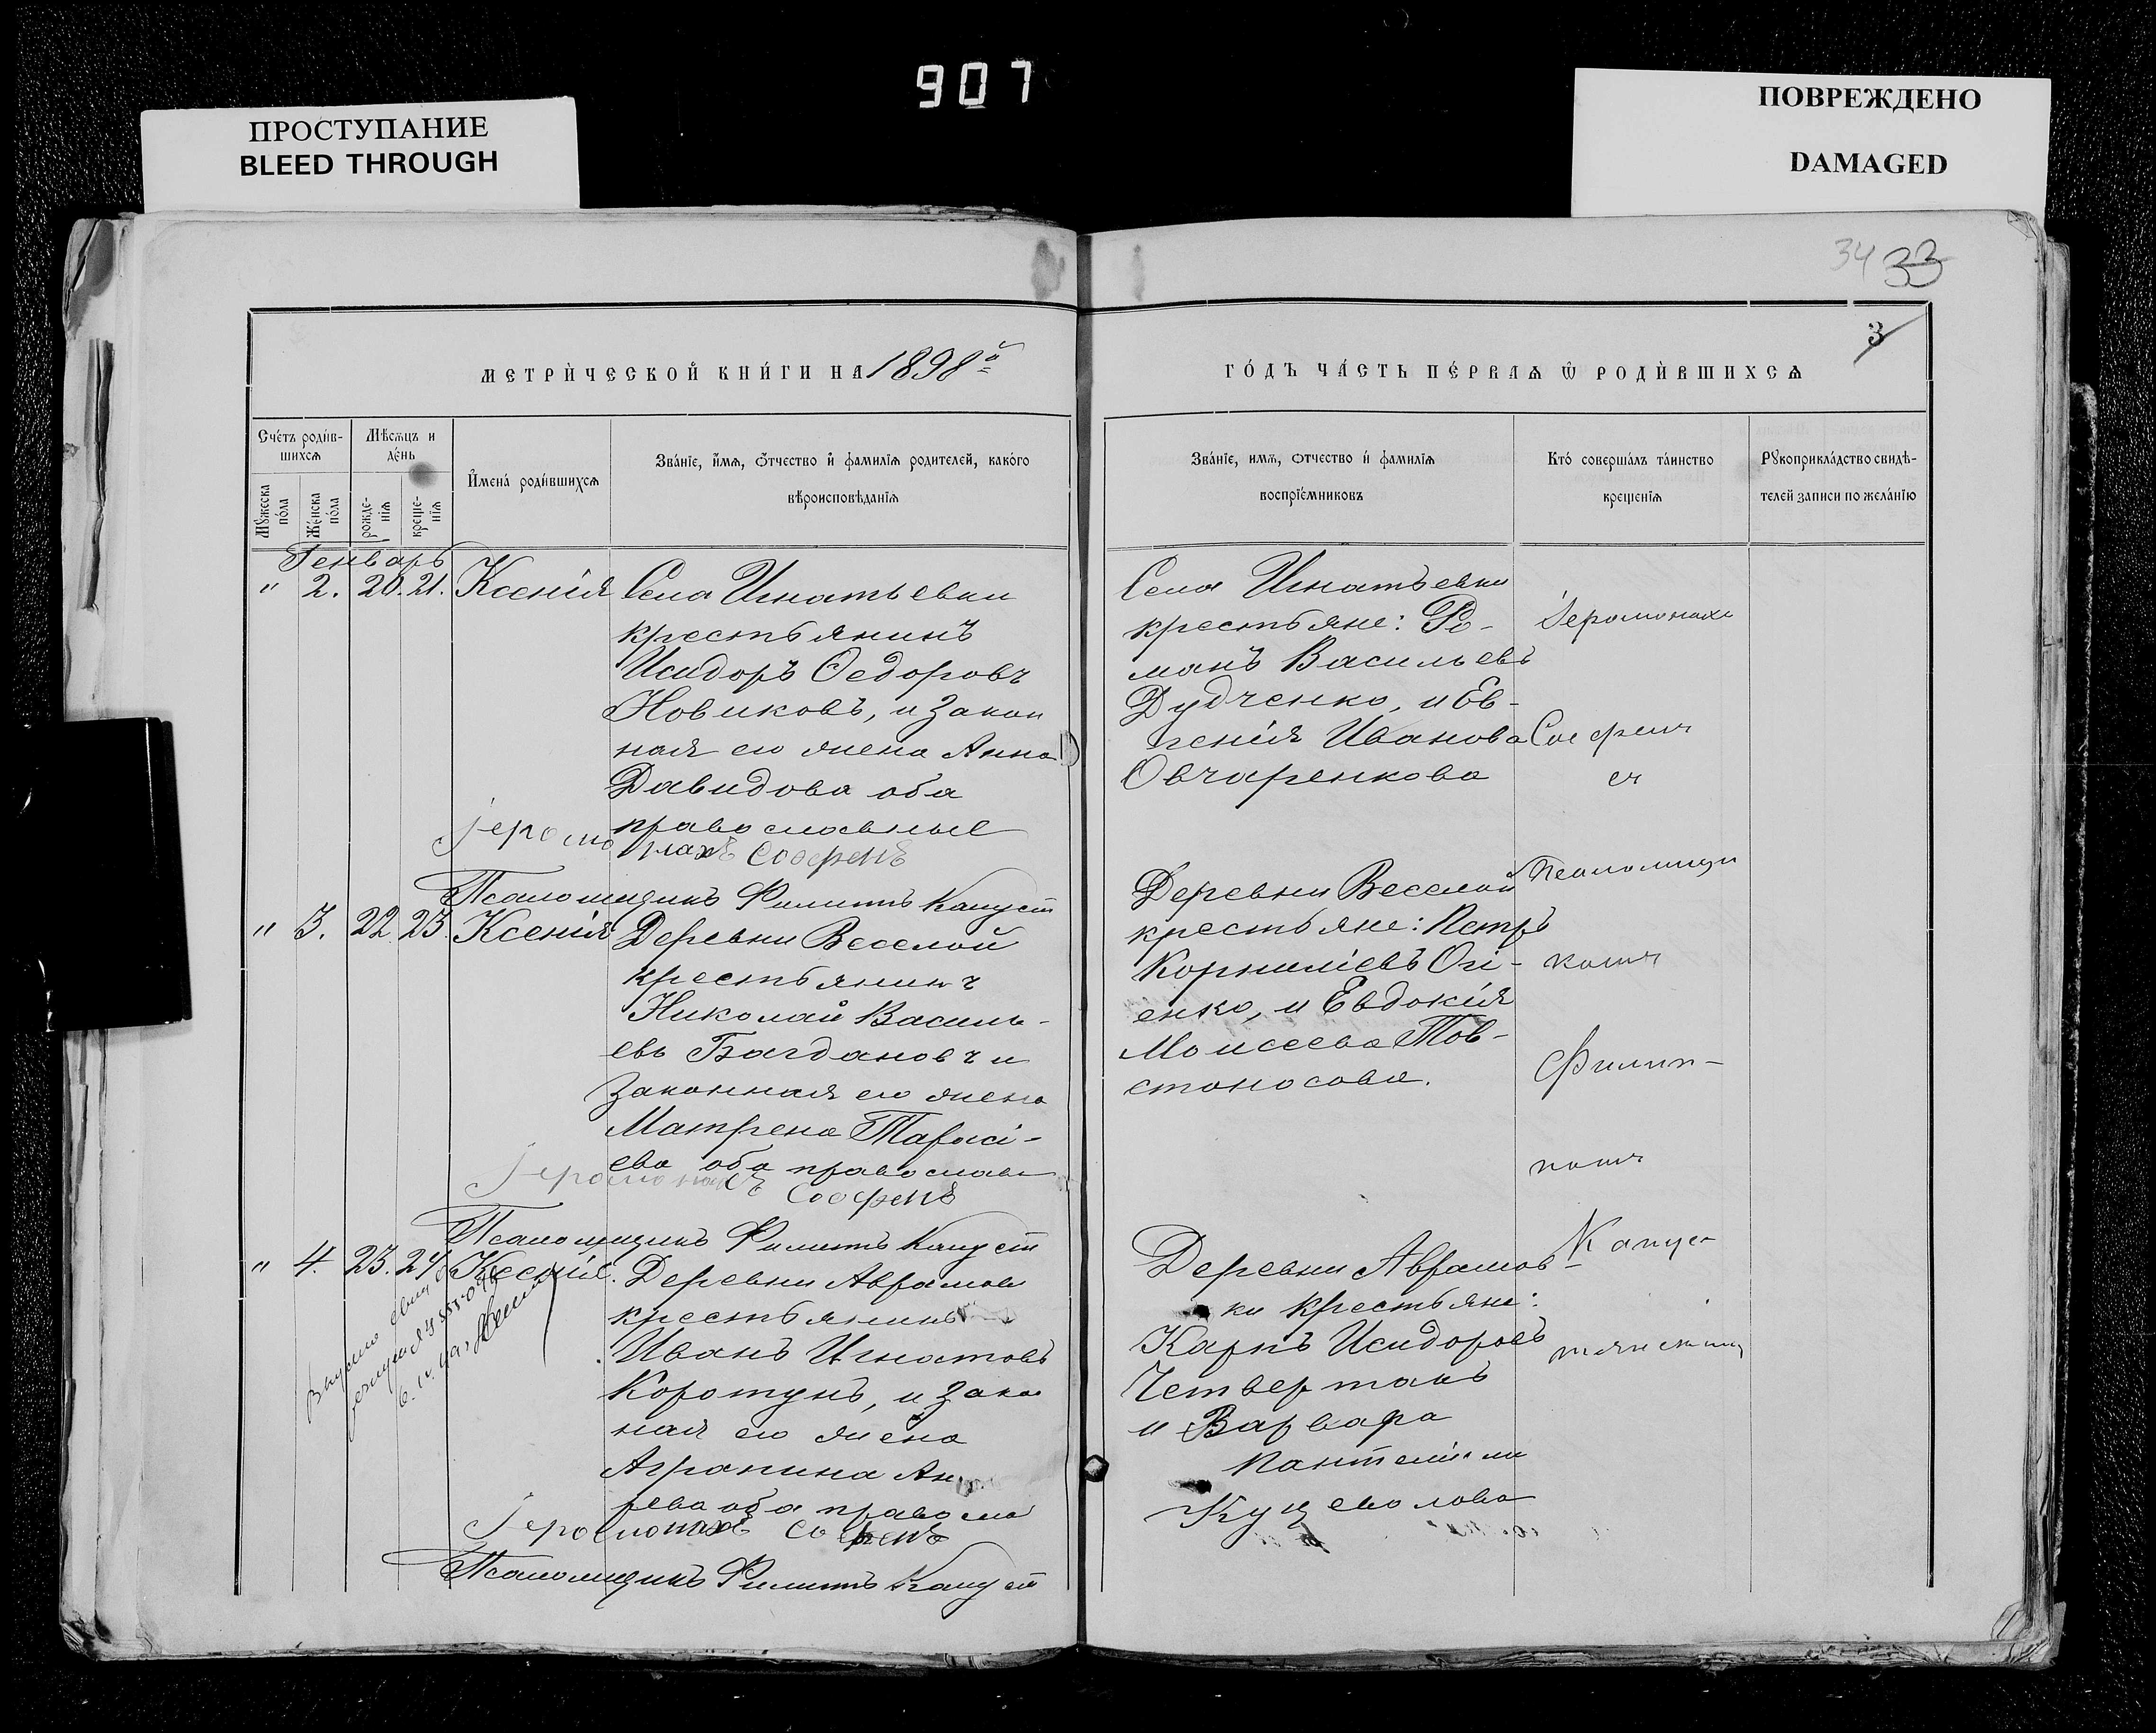 907
ПРОСТУПАНИЕ
BLEED THROUGH
ПОВРЕЖДЕНО
DAMAGED
34 33
3
МЕТРИ́ЧЕСКОЙ КНИ́ГИ НА 1898 й
ГО́ДЪ ЧА́СТЬ ПЕ́РВАѦ Ѿ РОДИ́ВШИХСѦ
Сче́тъ роди́в-
шихсѧ
Мѣсѧцъ и
де́нь
Мꙋжеска
по́ла
Же́нска
по́ла
рожде-
нїѧ
креще-
нїѧ
И҆мена́ роди́вшихсѧ
Зва́нїе, и҆́мѧ, ѻ҆́тчество и҆ фамилїѧ родителей, како́гѡ
вѣроисповѣданїѧ
Зва́нїе, имѧ, ѻтчество и҆ фамилїѧ
воспрїе́мниковъ
Кто́ соверша́лъ та́инство
креще́нїѧ
Рꙋкоприкла́дство свидѣ-
телей записи по жела́нїю
Генварь
" 2. 20. 21. Ксенія Села Игнатьевки
крестьянинъ
Исидоръ Ѳедоровъ
Новиковъ, и закон
ная его жена Анна
Давидова оба
православные
Іеромонахъ Соефенъ
Псаломщикъ Филиппъ Капуст
Села Игнатьевки
крестьяне: Ро-
манъ Васильевъ
Дудченко, и Ев-
генія Иванова
Овчаренкова
Іеромонахъ
" 3. 22. 23. Ксенія Деревни Веселой
крестьянинъ
Николай Василь-
евъ Багдановъ и
законная его жена
Матрена Тарасі-
ева оба православ
Іеромонахъ Соефенъ
Псаломщикъ Филиппъ Капуст
Деревни Веселой
крестьяне: Петръ
Корниліевъ Огі-
енко, и Евдокія
Моисеева Тов-
стоносова.
Псаломщи
комъ
Филип-
помъ
Капус-
" 4. 23. 24. Ксенія. Деревни Аврамов
крестьянинъ
Иванъ Игнатовъ
Коротунъ, и закон
ная его жена
Агрипина Ан
реева оба правосла
Іеромонахъ Соефенъ
Псаломщикъ Филиппъ Капуст
Деревни Аврамов-
ки крестьяне:
Карпъ Исидоровъ
Четвертакъ
и Варвара
Пантеліи